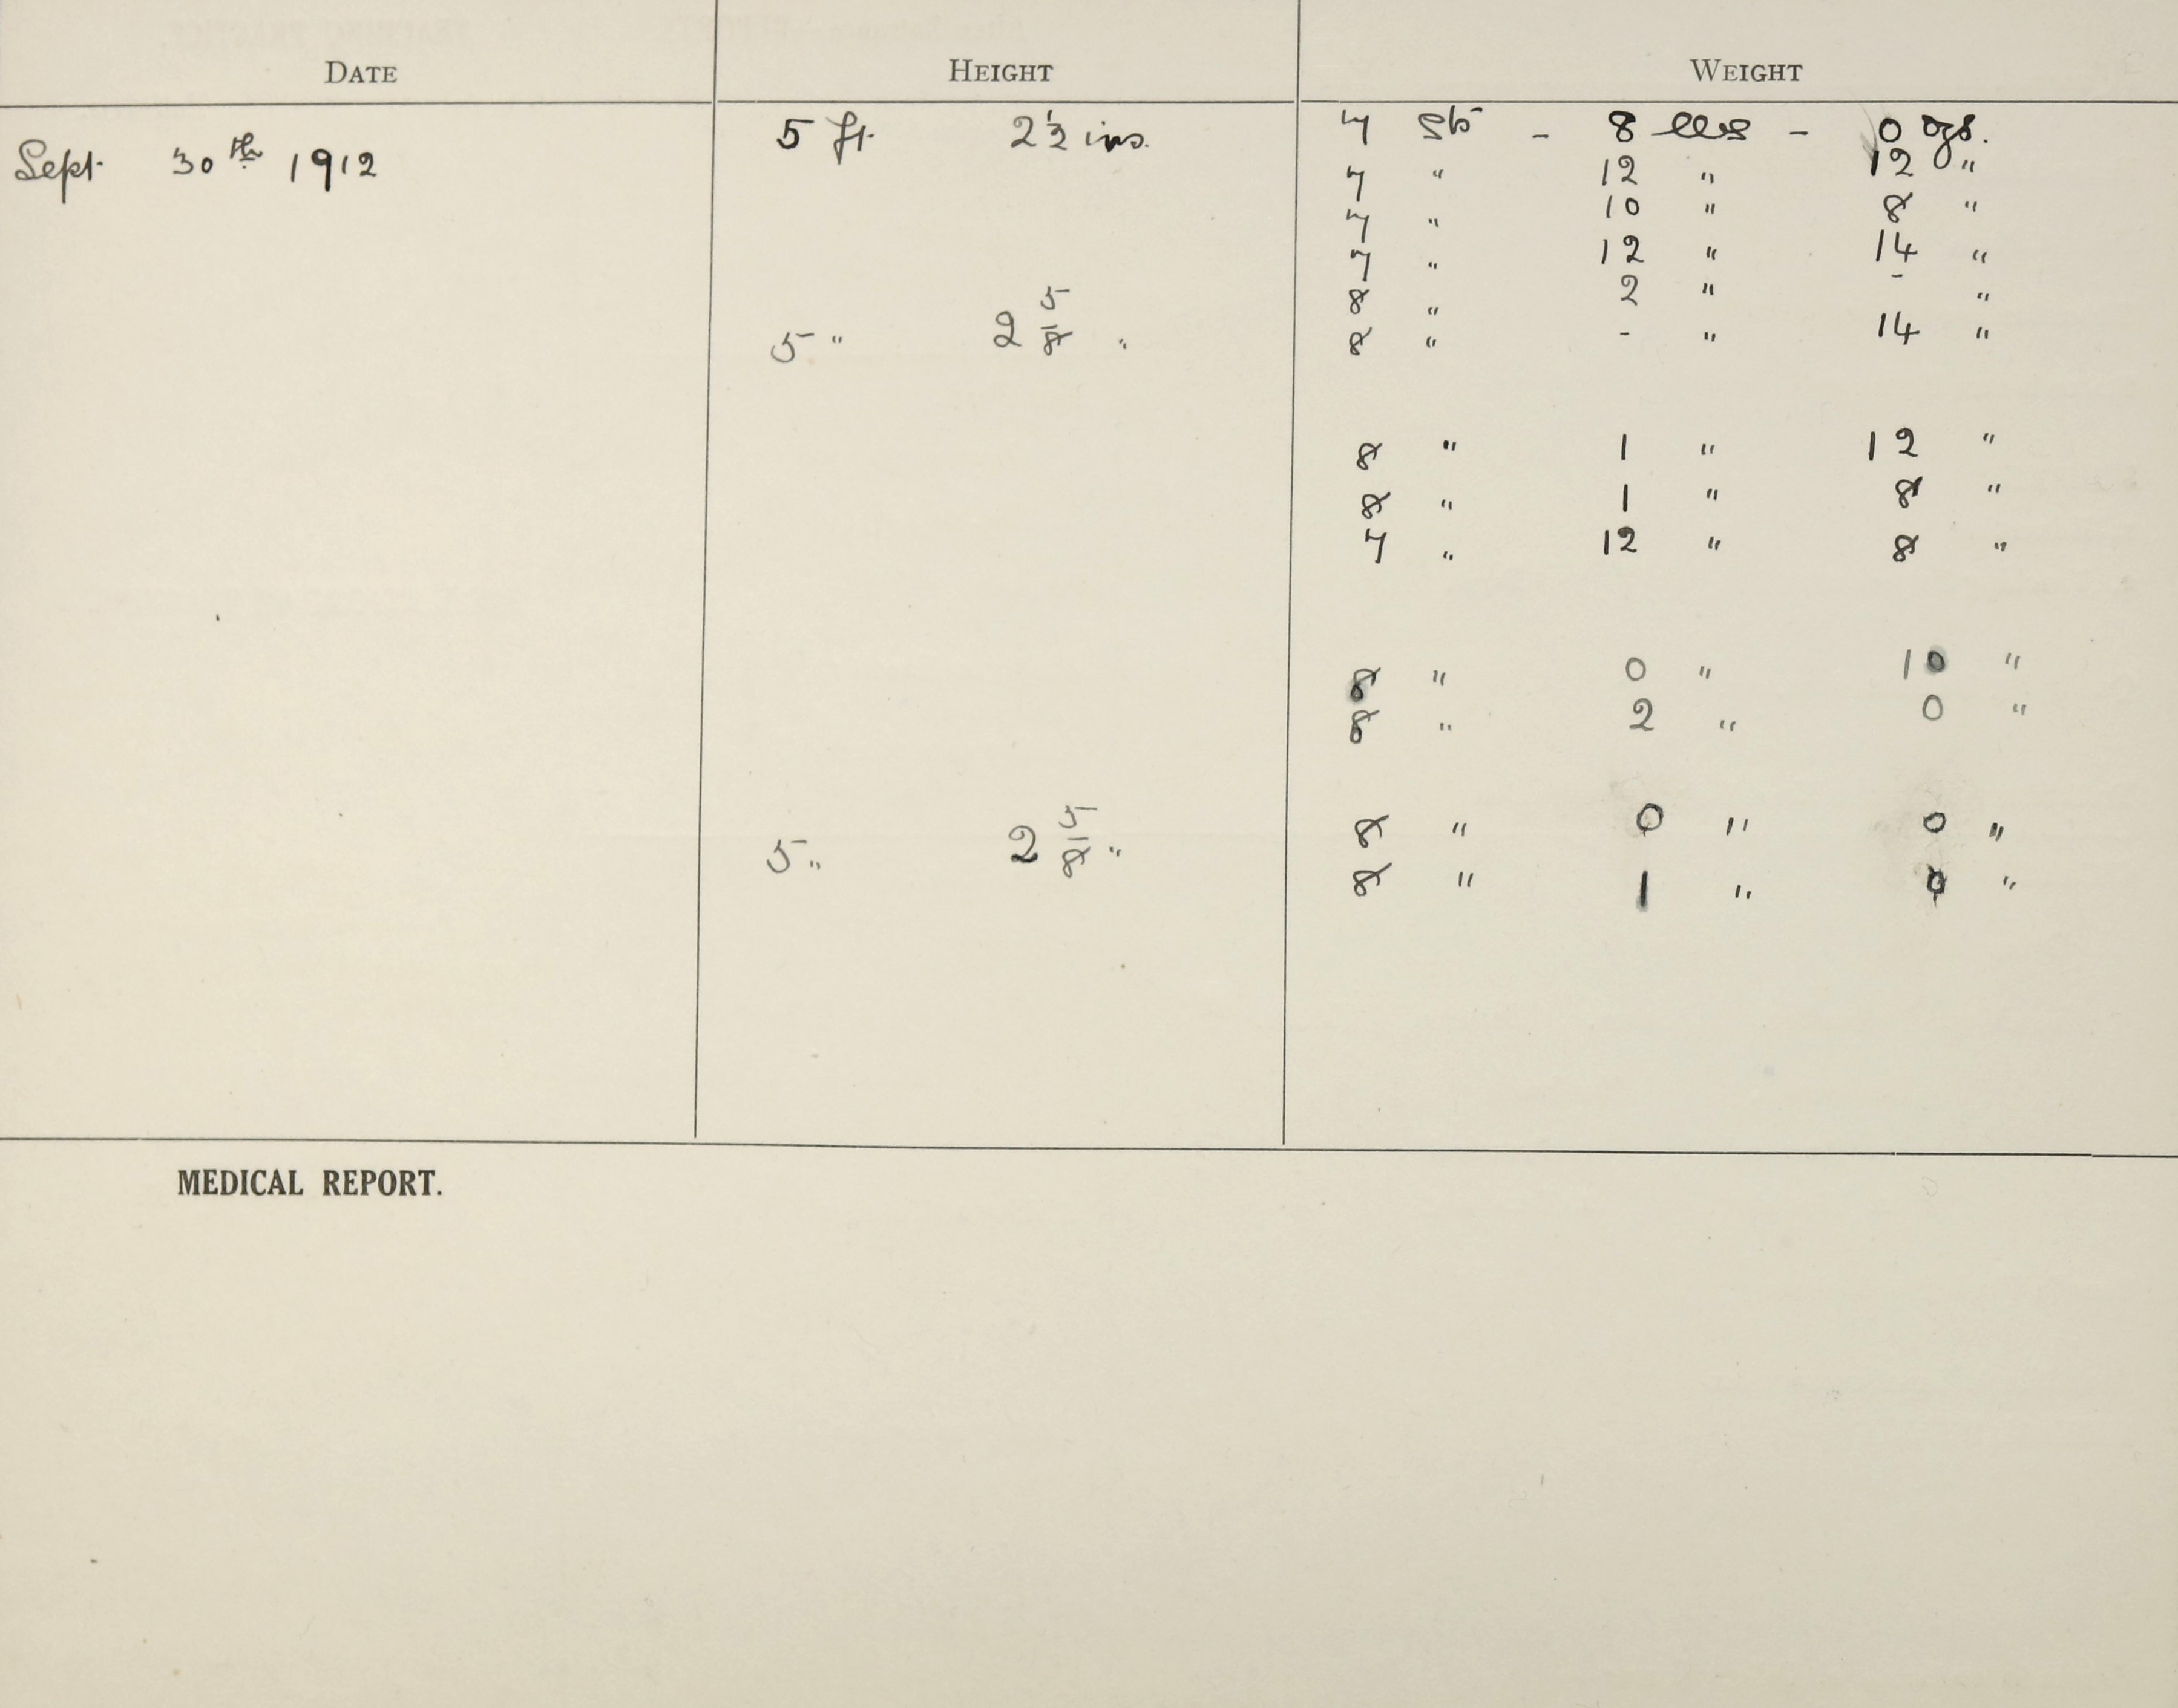 DATE HEIGHT WEIGHT
Sept. 30th 1912 5 ft. 2½ ins. 7 st - 8 lbs - 0 ozs.
7 " 12 " 12 "
7 " 10 " 8 "
7 " 12 " 14 "
8 " 2 " - "
5 " 2 5/8 " 8 " - " 14 "
8 " 1 " 12 "
8 " 1 " 8 "
7 " 12 " 8 "
8 " 0 " 10 "
8 " 2 " 0 "
5 " 2 5/8 " 8 " 0 " 0 "
8 " 1 " 0 "
MEDICAL REPORT.